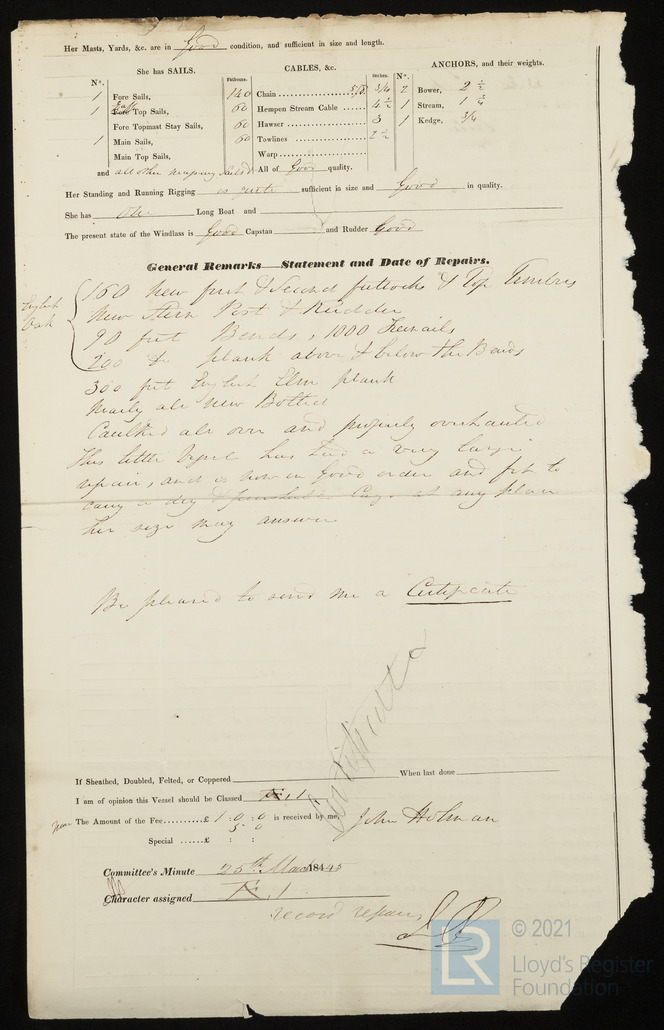 Her Masts, Yards, &c. are in Good condition, and sufficient in size and length.
She has SAILS. CABLES, &c. ANCHORS, and their weights.
N°. Fathoms. Inches. N°.
1 Fore Sails, 140 Chain 5/8 3/4 2 Bower, 2 1/2
1 Fore Top Sails, 60 Hempen Stream Cable 4 1/2 1 Stream, 1 1/4
Fore Topmast Stay Sails, 60 Hawser 3 1 Kedge, 3/4
1 Main Sails, 60 Towlines 2 1/2
Main Top Sails, Warp
and all other necessary Sails All of Good quality.
Her Standing and Running Rigging is quite sufficient in size and Good in quality.
She has One Long Boat and
The present state of the Windlass is Good Capstan and Rudder Good
General Remarks Statement and Date of Repairs.
English Oak
160 New first & Second futtocks & Top Timbers
New Stern Post & Rudder
90 feet Bends, 1000 Treenails
200 do plank above & below the Bends
300 feet English Elm plank
Nearly all New Bolted
Caulked all over and properly overhauled
This little Vessel has had a very large
repair, and is now in Good order and fit to
carry a dry & perishable Cargo at any place
her size may answer
Be pleased to send me a Certificate
Certificate
If Sheathed, Doubled, Felted, or Coppered When last done
I am of opinion this Vessel should be Classed Æ 1
The Amount of the Fee £ 1 : 0 : 0 is received by me, John Holman
5 0
Special £ : :
Committee's Minute 25th March 1845
Character assigned Æ 1
record repairs
LR © 2021
Lloyd's Register
Foundation